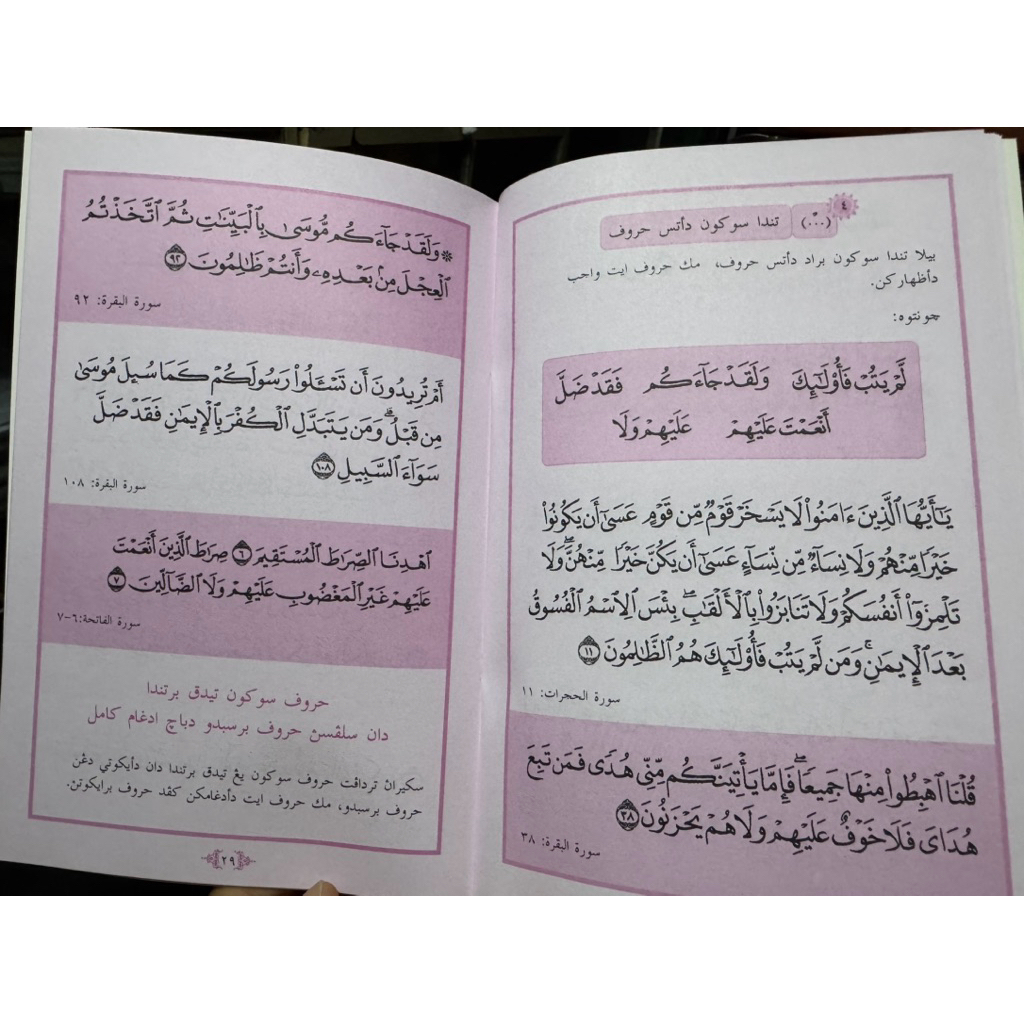 ٤
(ـْـ) تندا سوكون دأتس حروف
بيلا تندا سوكون براد دأتس حروف، مك حروف ايت واجب
دأظهاركن.
چونتوه:
لَّمْ يَتُبْ فَأُو۟لَـٰٓئِكَ وَلَقَدْ جَآءَكُم فَقَدْ ضَلَّ
أَنْعَمْتَ عَلَيْهِمْ عَلَيْهِمْ وَلَا
يَـٰٓأَيُّهَا ٱلَّذِينَ ءَامَنُوا۟ لَا يَسْخَرْ قَوْمٌ مِّن قَوْمٍ عَسَىٰٓ أَن يَكُونُوا۟
خَيْرًا مِّنْهُمْ وَلَا نِسَآءٌ مِّن نِّسَآءٍ عَسَىٰٓ أَن يَكُنَّ خَيْرًا مِّنْهُنَّ ۖ وَلَا
تَلْمِزُوٓا۟ أَنفُسَكُمْ وَلَا تَنَابَزُوا۟ بِٱلْأَلْقَـٰبِ ۖ بِئْسَ ٱلِٱسْمُ ٱلْفُسُوقُ
بَعْدَ ٱلْإِيمَـٰنِ ۚ وَمَن لَّمْ يَتُبْ فَأُو۟لَـٰٓئِكَ هُمُ ٱلظَّـٰلِمُونَ ١١
سورة الحجرات: ١١
قُلْنَا ٱهْبِطُوا۟ مِنْهَا جَمِيعًا ۖ فَإِمَّا يَأْتِيَنَّكُم مِّنِّى هُدًى فَمَن تَبِعَ
هُدَاىَ فَلَا خَوْفٌ عَلَيْهِمْ وَلَا هُمْ يَحْزَنُونَ ٣٨
سورة البقرة: ٣٨
۞ وَلَقَدْ جَآءَكُم مُّوسَىٰ بِٱلْبَيِّنَـٰتِ ثُمَّ ٱتَّخَذْتُمُ
ٱلْعِجْلَ مِنۢ بَعْدِهِۦ وَأَنتُمْ ظَـٰلِمُونَ ٩٢
سورة البقرة: ٩٢
أَمْ تُرِيدُونَ أَن تَسْـَٔلُوا۟ رَسُولَكُمْ كَمَا سُئِلَ مُوسَىٰ
مِن قَبْلُ ۗ وَمَن يَتَبَدَّلِ ٱلْكُفْرَ بِٱلْإِيمَـٰنِ فَقَدْ ضَلَّ
سَوَآءَ ٱلسَّبِيلِ ١٠٨
سورة البقرة: ١٠٨
ٱهْدِنَا ٱلصِّرَٰطَ ٱلْمُسْتَقِيمَ ٦ صِرَٰطَ ٱلَّذِينَ أَنْعَمْتَ
عَلَيْهِمْ غَيْرِ ٱلْمَغْضُوبِ عَلَيْهِمْ وَلَا ٱلضَّآلِّينَ ٧
سورة الفاتحة: ٦-٧
حروف سوكون تيدق برتندا
دان سلڤسڽ حروف برسبدو دباچ ادغام كامل
سكيراڽ تردافت حروف سوكون يڠ تيدق برتندا دان دأيكوتي دڠن
حروف برسبدو، مك حروف ايت دأدغامكن كڤد حروف برايكوتڽ.
٢٩